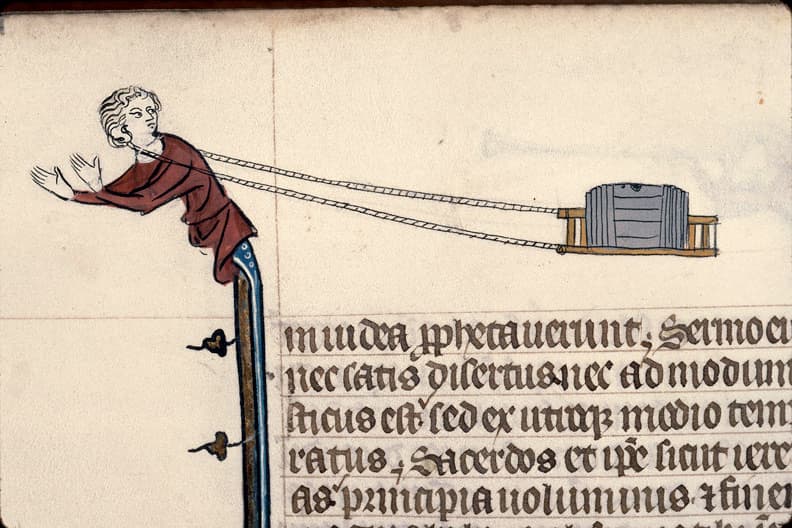 in iudea ꝓphetauerunt; Sermo ei
nec satis disertus nec ad modum
sticus est sed ex utroqꝫ medio tem
ratus; Sacerdos et ip̄e sicut iere
as principia uoluminis ⁊ fine